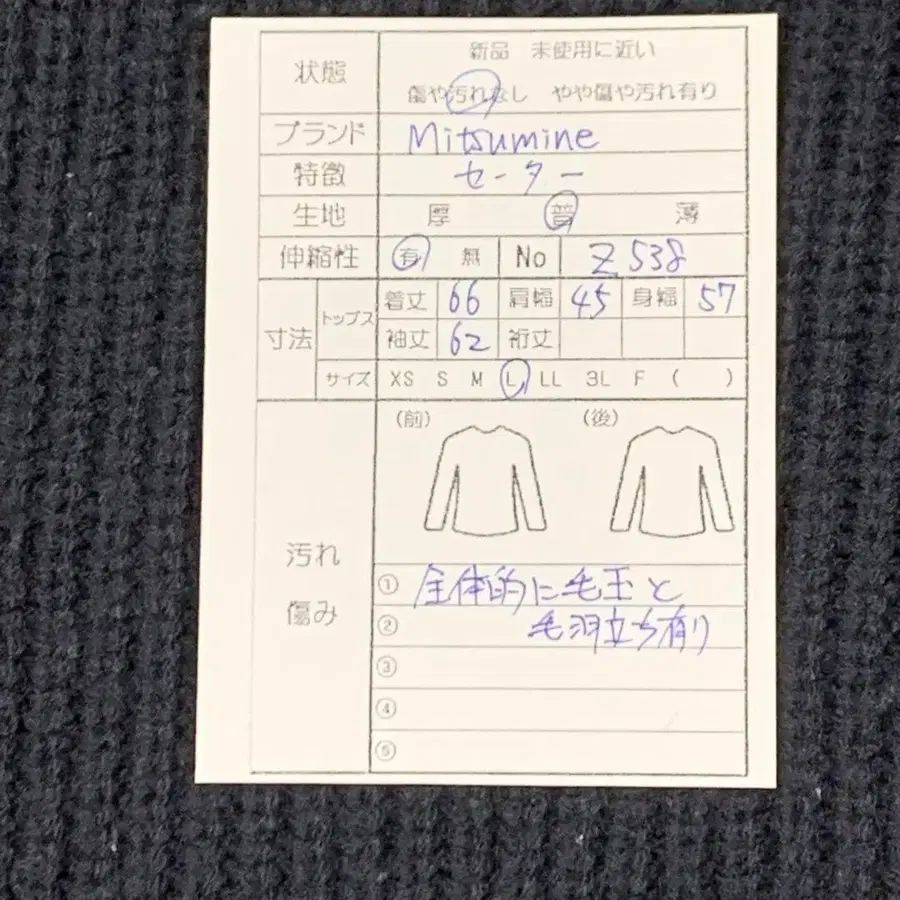 状態 新品 未使用に近い
傷や汚れなし やや傷や汚れ有り
ブランド Mitsumine
特徴 セーター
生地 厚 普 薄
伸縮性 有 無 No Z538
寸法 トップス 着丈 66 肩幅 45 身幅 57
袖丈 62 裄丈
サイズ XS S M L LL 3L F ( )
汚れ 傷み
(前) (後)
① 全体的に毛玉と
② 毛羽立ち有り
③
④
⑤